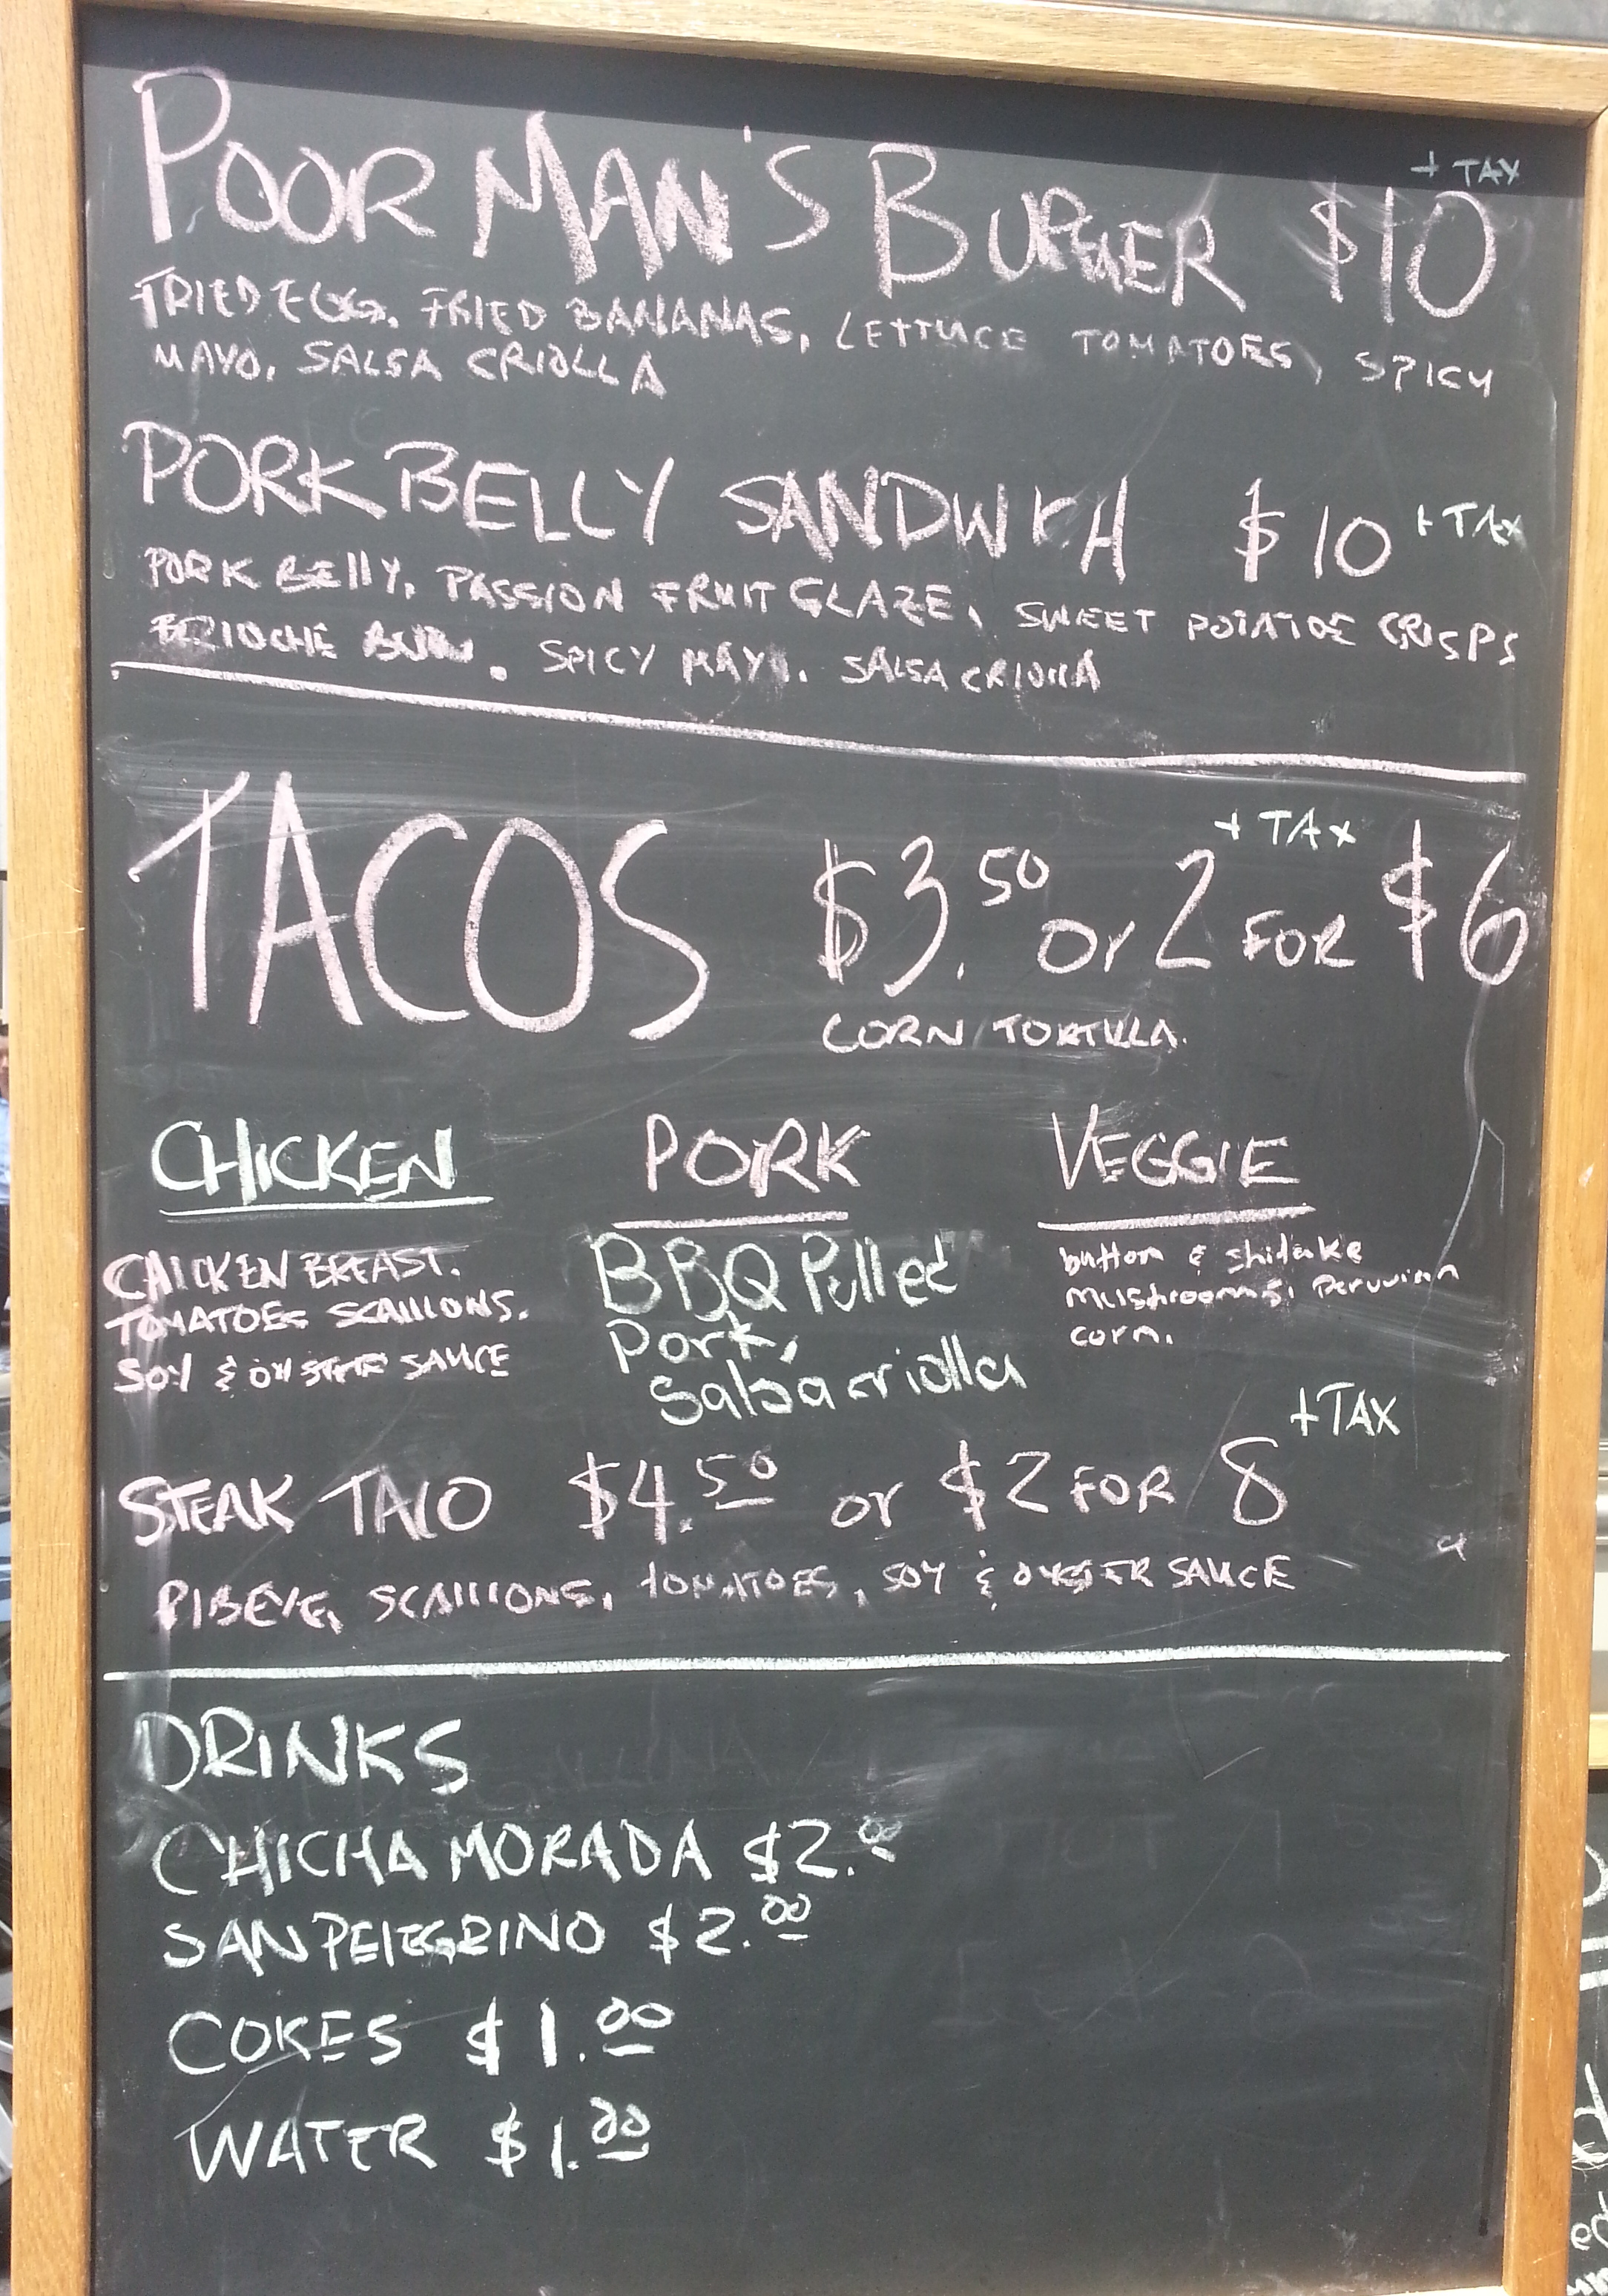 + TAX
POOR MAN'S BURGER $10
FRIED EGG, FRIED BANANAS, LETTUCE TOMATOES, SPICY
MAYO, SALSA CRIOLLA
PORK BELLY SANDWICH $10 + TAX
PORK BELLY, PASSION FRUIT GLAZE, SWEET POTATOE CRISPS
BRIOCHE BUN. SPICY MAYO. SALSA CRIOLLA
+ TAX
TACOS $3.50 or 2 FOR $6
CORN TORTILLA.
CHICKEN
CHICKEN BREAST.
TOMATOES SCALLIONS.
SOY & OYSTER SAUCE
PORK
BBQ Pulled
Pork,
Salsa criolla
VEGGIE
button & shitake
mushrooms, Peruvian
corn.
+TAX
STEAK TACO $4.50 or $2 FOR 8
RIBEYE, SCALLIONS, TOMATOES, SOY & OYSTER SAUCE
DRINKS
CHICHA MORADA $2.00
SAN PELEGRINO $2.00
COKES $1.00
WATER $1.00